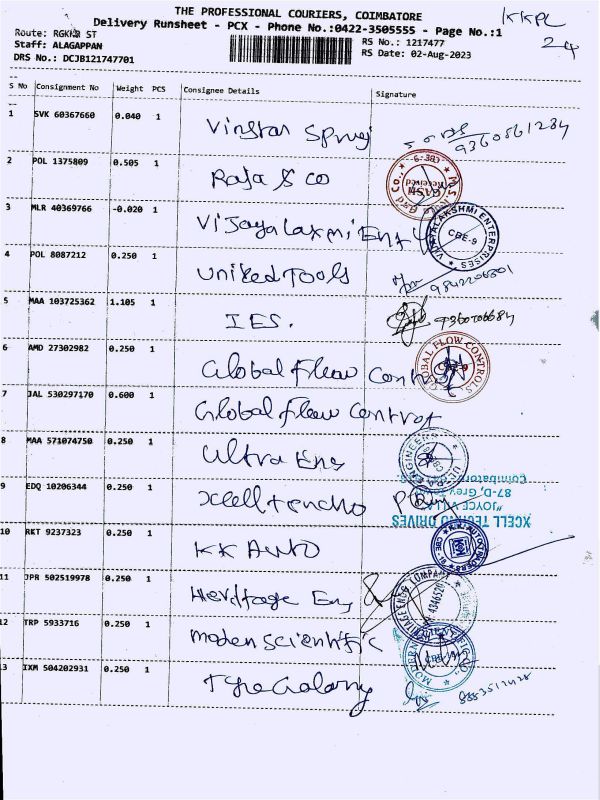 THE PROFESSIONAL COURIERS, COIMBATORE
Delivery Runsheet - PCX - Phone No.:0422-3505555 - Page No.:1
KKPL
24
Route: RGKNR ST
Staff: ALAGAPPAN
DRS No.: DCJB121747701
RS No.: 1217477
RS Date: 02-Aug-2023
S No Consignment No Weight PCS Consignee Details Signature
1 SVK 60367660 0.040 1 Vinstar Spring
9360561284
2 POL 1375809 0.505 1 Raja & co
3 MLR 40369766 -0.020 1 Vijayalaxmi Ent
VIJAYALAKSHMI ENTERPRISES CBE-9
4 POL 8087212 0.250 1 United Tools
9842206801
5 MAA 103725362 1.105 1 IES.
9360706684
6 AMD 27302982 0.250 1 Global flow control
GLOBAL FLOW CONTROLS
7 JAL 530297170 0.600 1 Global flow control
8 MAA 571074750 0.250 1 Ultra Eng
9 EDQ 10206344 0.250 1 Xcell techno
87-D, Grey
"JOYCE VILLA"
XCELL TECHNO DRIVES
10 RKT 9237323 0.250 1 KK Auto
11 JPR 502519978 0.250 1 Heritage Eng
12 TRP 5933716 0.250 1 moden scientific
13 IXM 504202931 0.250 1 Tyre Galaxy